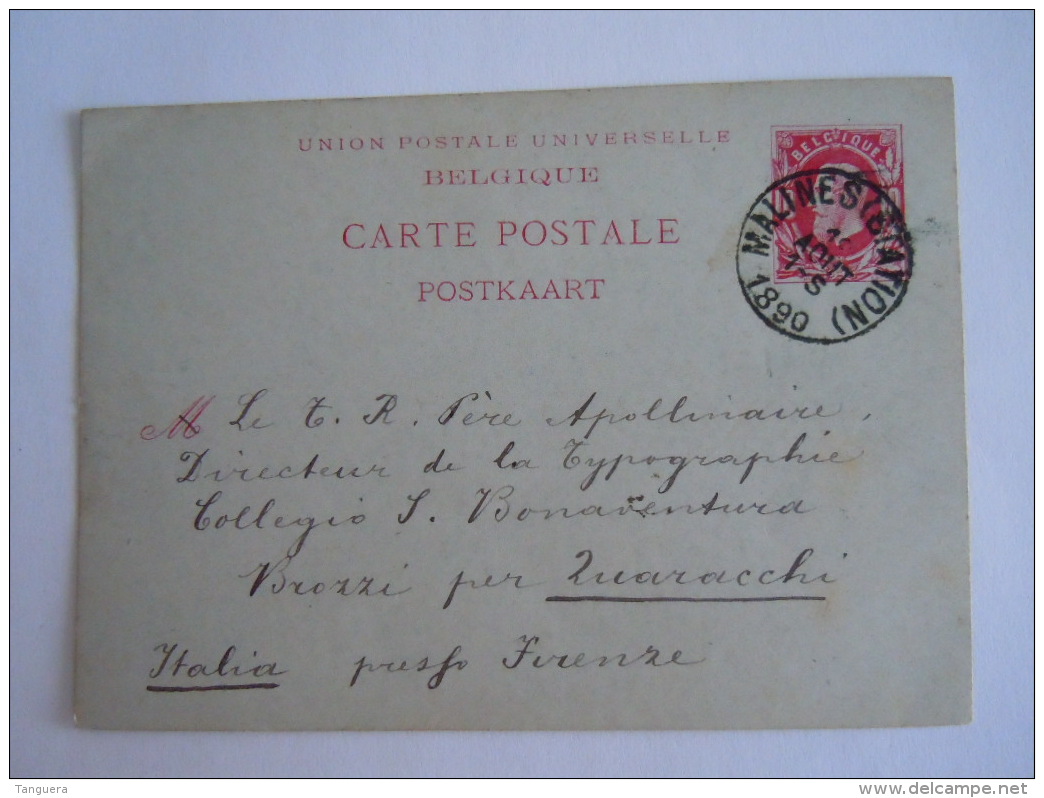 UNION POSTALE UNIVERSELLE
BELGIQUE
CARTE POSTALE
POSTKAART
BELGIQUE
MALINES (STATION)
AOUT
7-S
1890
M Le T. R. Père Apollinaire,
Directeur de la Typographie
Collegio S. Bonaventura
Brozzi per Quaracchi
Italia presso Firenze
Tanguera
www.delcampe.net